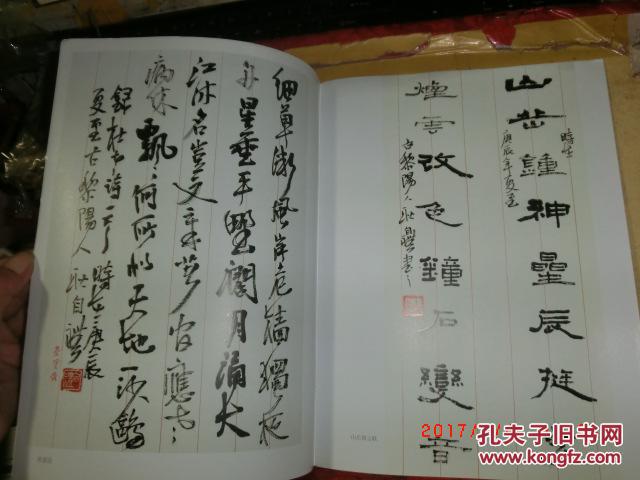 山岳鍾神星辰挺
時在
庚辰年夏至
煙雲改色鐘石變音
古黎陽人耿自禮書
細草微風岸危檣獨夜
舟星垂平野闊月涌大
江流名豈文章著官應老
病休飄〻何所似天地一沙鷗
錄杜甫詩一首時在庚辰
夏至古黎陽人耿自禮
2017/
孔夫子旧书网
www.kongfz.com